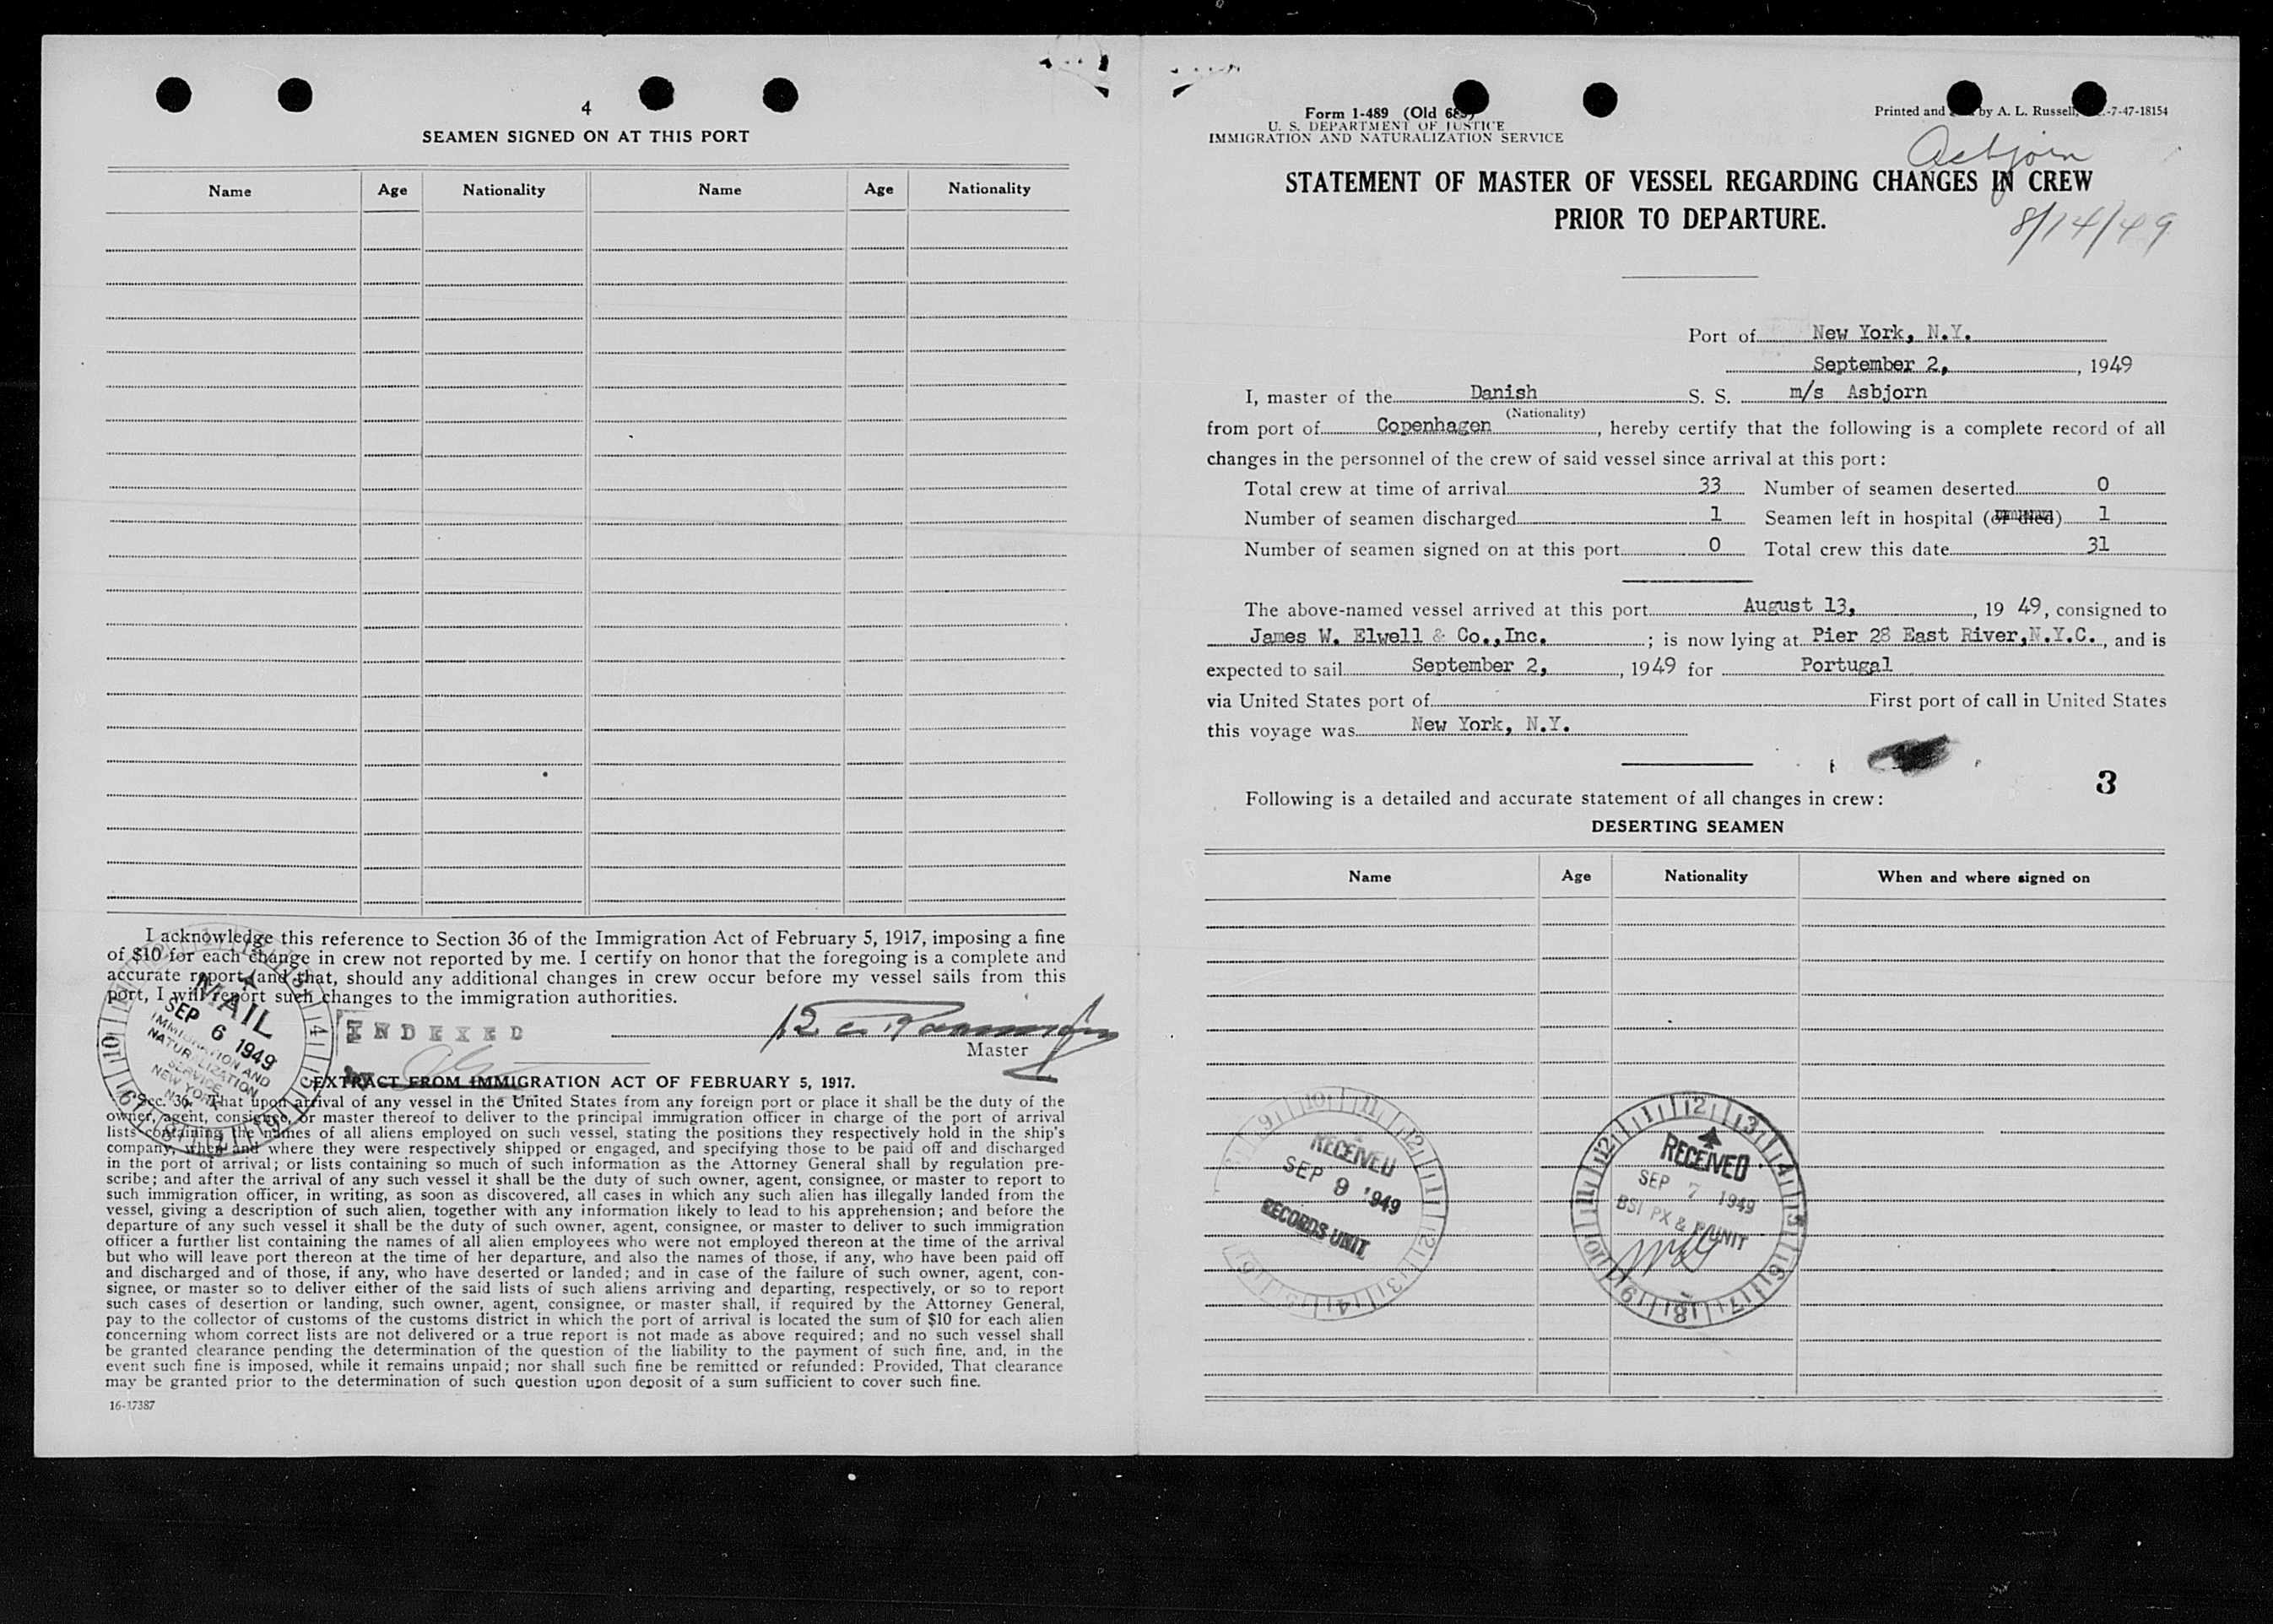 4
SEAMEN SIGNED ON AT THIS PORT
Name Age Nationality Name Age Nationality
I acknowledge this reference to Section 36 of the Immigration Act of February 5, 1917, imposing a fine
of $10 for each change in crew not reported by me. I certify on honor that the foregoing is a complete and
accurate report, and that, should any additional changes in crew occur before my vessel sails from this
port, I will report such changes to the immigration authorities.
MAIL
SEP 6 1949
IMMIGRATION AND
NATURALIZATION
SERVICE
NEW YORK
N.Y.
INDEXED
Master
EXTRACT FROM IMMIGRATION ACT OF FEBRUARY 5, 1917.
Sec. 36. That upon arrival of any vessel in the United States from any foreign port or place it shall be the duty of the
owner, agent, consignee, or master thereof to deliver to the principal immigration officer in charge of the port of arrival
lists containing the names of all aliens employed on such vessel, stating the positions they respectively hold in the ship's
company, when and where they were respectively shipped or engaged, and specifying those to be paid off and discharged
in the port of arrival; or lists containing so much of such information as the Attorney General shall by regulation pre-
scribe; and after the arrival of any such vessel it shall be the duty of such owner, agent, consignee, or master to report to
such immigration officer, in writing, as soon as discovered, all cases in which any such alien has illegally landed from the
vessel, giving a description of such alien, together with any information likely to lead to his apprehension; and before the
departure of any such vessel it shall be the duty of such owner, agent, consignee, or master to deliver to such immigration
officer a further list containing the names of all alien employees who were not employed thereon at the time of the arrival
but who will leave port thereon at the time of her departure, and also the names of those, if any, who have been paid off
and discharged and of those, if any, who have deserted or landed; and in case of the failure of such owner, agent, con-
signee, or master so to deliver either of the said lists of such aliens arriving and departing, respectively, or so to report
such cases of desertion or landing, such owner, agent, consignee, or master shall, if required by the Attorney General,
pay to the collector of customs of the customs district in which the port of arrival is located the sum of $10 for each alien
concerning whom correct lists are not delivered or a true report is not made as above required; and no such vessel shall
be granted clearance pending the determination of the question of the liability to the payment of such fine, and, in the
event such fine is imposed, while it remains unpaid; nor shall such fine be remitted or refunded: Provided, That clearance
may be granted prior to the determination of such question upon deposit of a sum sufficient to cover such fine.
16-17387
Form 1-489 (Old 689)
U. S. DEPARTMENT OF JUSTICE
IMMIGRATION AND NATURALIZATION SERVICE
Printed and by A. L. Russell, -7-47-18154
Asbjorn
STATEMENT OF MASTER OF VESSEL REGARDING CHANGES IN CREW
PRIOR TO DEPARTURE.
8/14/49
Port of New York, N.Y.
September 2, , 1949
I, master of the Danish S. S. m/s Asbjorn
(Nationality)
from port of Copenhagen , hereby certify that the following is a complete record of all
changes in the personnel of the crew of said vessel since arrival at this port:
Total crew at time of arrival 33 Number of seamen deserted 0
Number of seamen discharged 1 Seamen left in hospital (or died) 1
Number of seamen signed on at this port 0 Total crew this date 31
The above-named vessel arrived at this port August 13, , 19 49, consigned to
James W. Elwell & Co.,Inc. ; is now lying at Pier 28 East River,N.Y.C. , and is
expected to sail September 2, , 1949 for Portugal
via United States port of First port of call in United States
this voyage was New York, N.Y.
3
Following is a detailed and accurate statement of all changes in crew:
DESERTING SEAMEN
Name Age Nationality When and where signed on
RECEIVED
SEP 9 1949
RECORDS UNIT
RECEIVED
SEP 7 1949
BSI PX & P UNIT